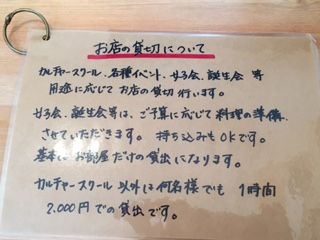 お店の貸切について
カルチャースクール、各種イベント、女子会、誕生会 等
用途に応じて お店の貸切 行います。
女子会、誕生会等は、ご予算に応じて料理の準備、
させていただきます。 持ち込みもOKです。
基本はお部屋だけの貸出になります。
カルチャースクール 以外は何名様でも 1時間
2.000円での貸出です。